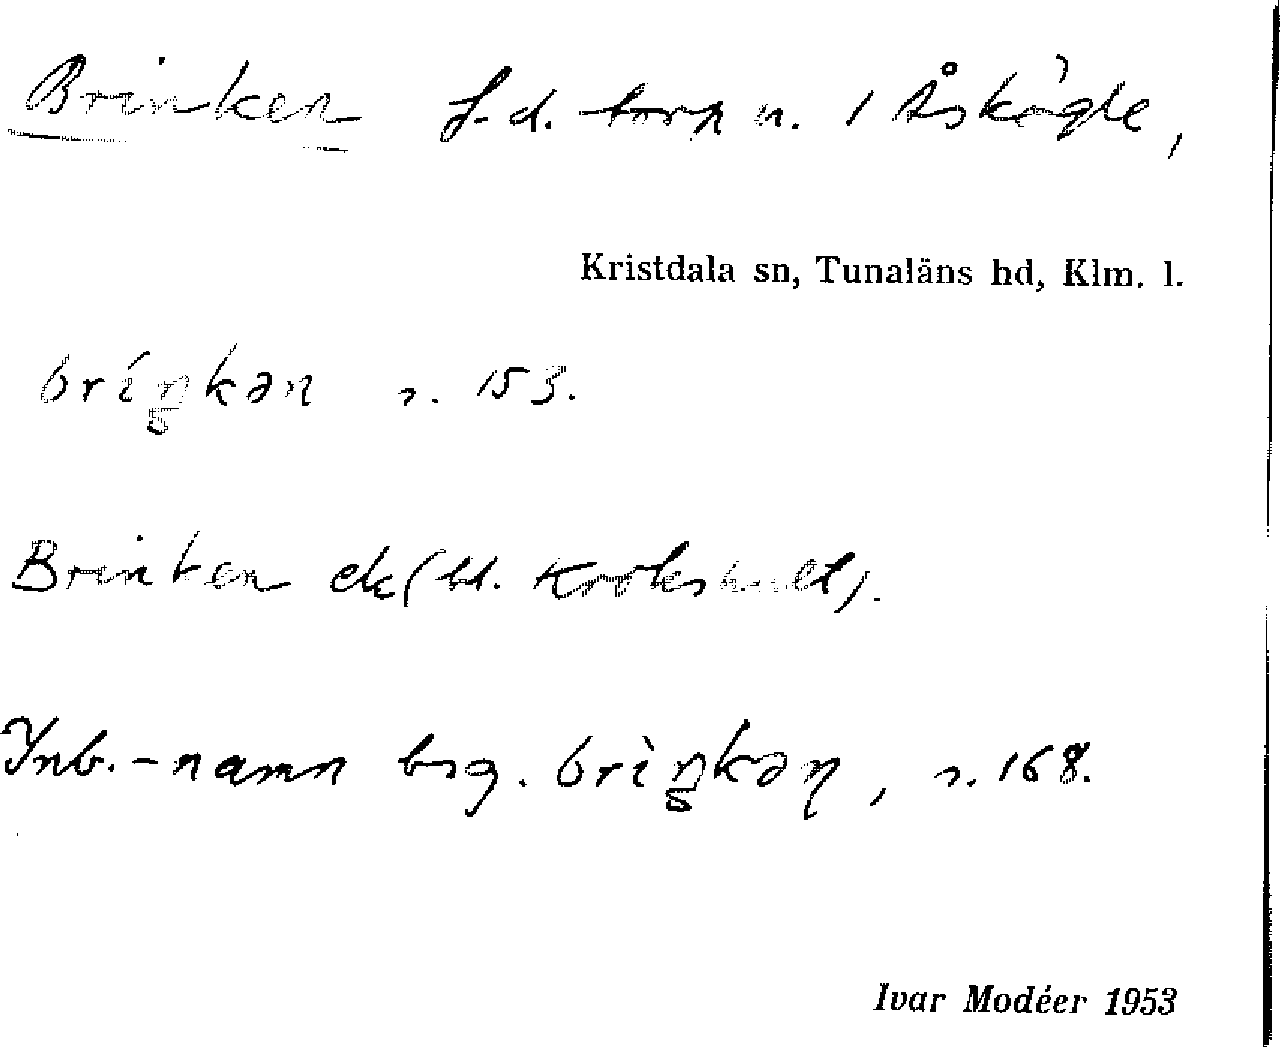 Brinken f.d. torp u. 1 Åskögle,
Kristdala sn, Tunaläns hd, Klm. l.
bríŋkən s. 153.
Brinken ek (bl. Krokshult).
Inb.-namn bsg. brìŋkəɳ, s. 168.
Ivar Modéer 1953